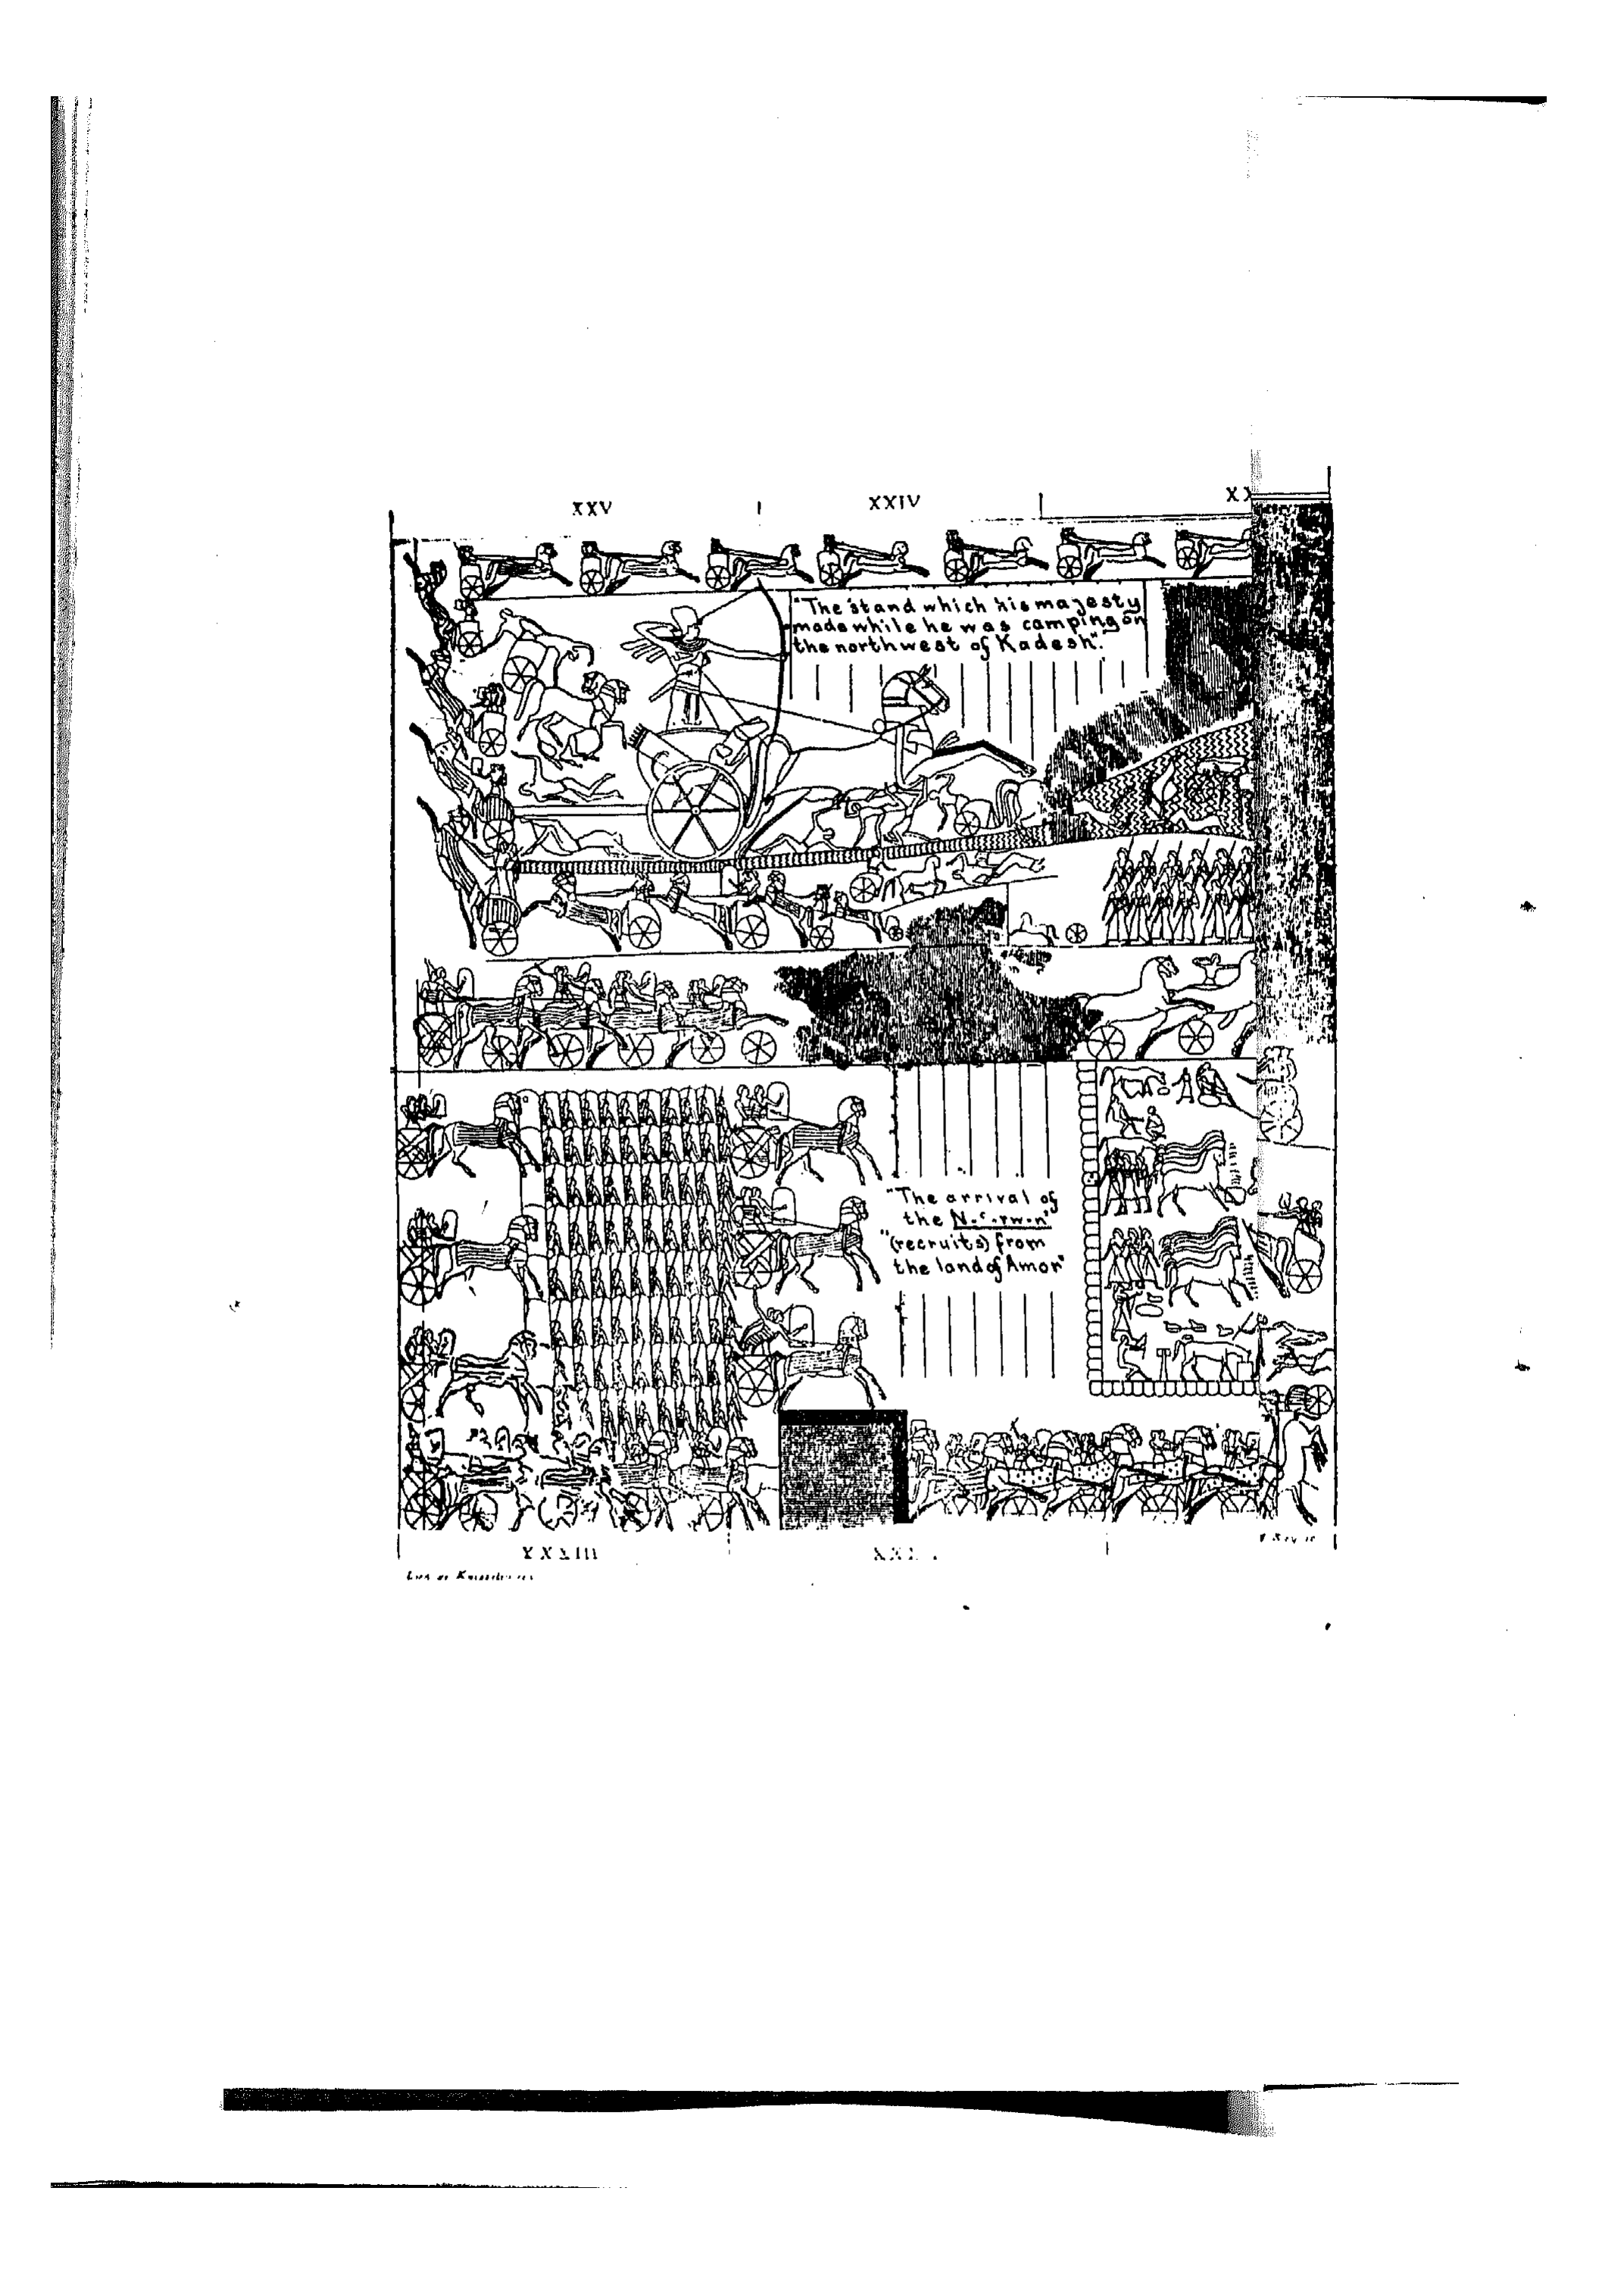 XXV
XXIV
"The stand which his majesty
made while he was camping on
the northwest of Kadesh."
"The arrival of
the N.c.rw.n"
"(recruits) from
the land of Amor"
XXXIII